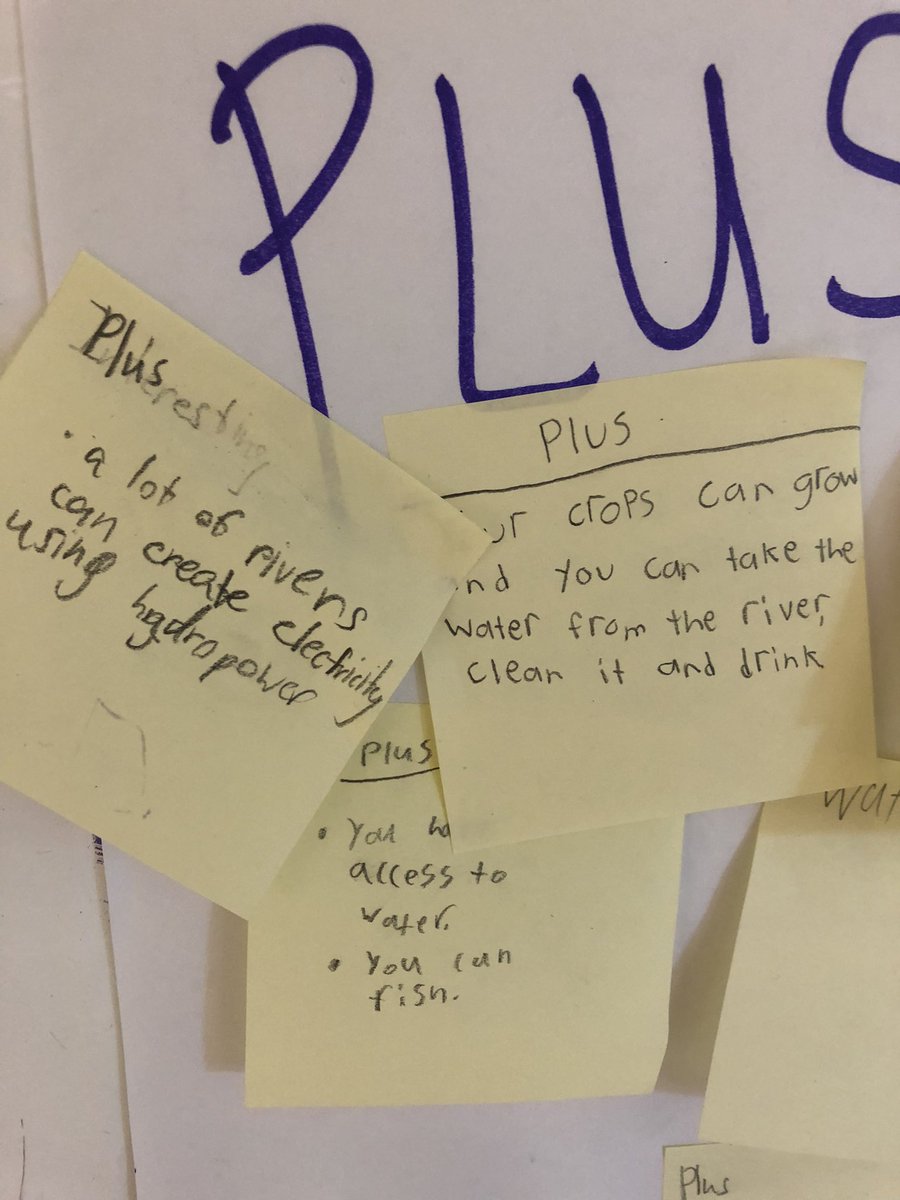 PLUS
Plus
• a lot of rivers
can create electricity
using hydropower
Plus
crops can grow
you can take the
water from the river,
clean it and drink
Plus
• You
access to
water.
• You can
fish.
Plus